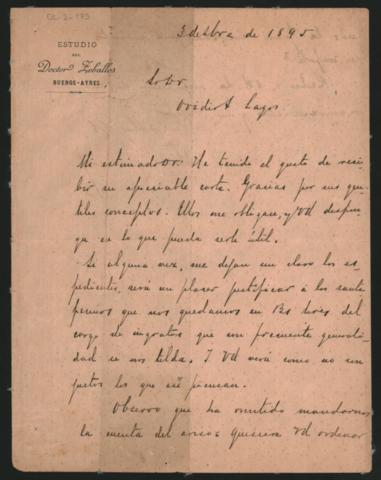 ESTUDIO
DEL
Doctor Zeballos
BUENOS-AYRES
3 de de 1895
Sr Dr
Ovidio A Lagos
Mi estimado Dr. He tenido el gusto de reci-
bir su apreciable carta. Gracias por sus gen-
tiles conceptos. Ellos me obligan, y Vd dispon-
ga en lo que pueda serle útil.
Si alguna vez, me dejan un claro los es-
pedientes, será un placer justificar á los sante
fecinos que nos quedamos en Bs Aires del
cargo de ingratos que con frecuente generali-
dad se nos tilda. I Vd verá como no son
justos los que así piensan.
Observo que ha omitido mandarme
la cuenta del aviso. Quisiera Vd ordenar